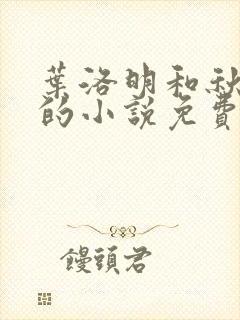 葉洛明和秋
的小說免費
饅頭君